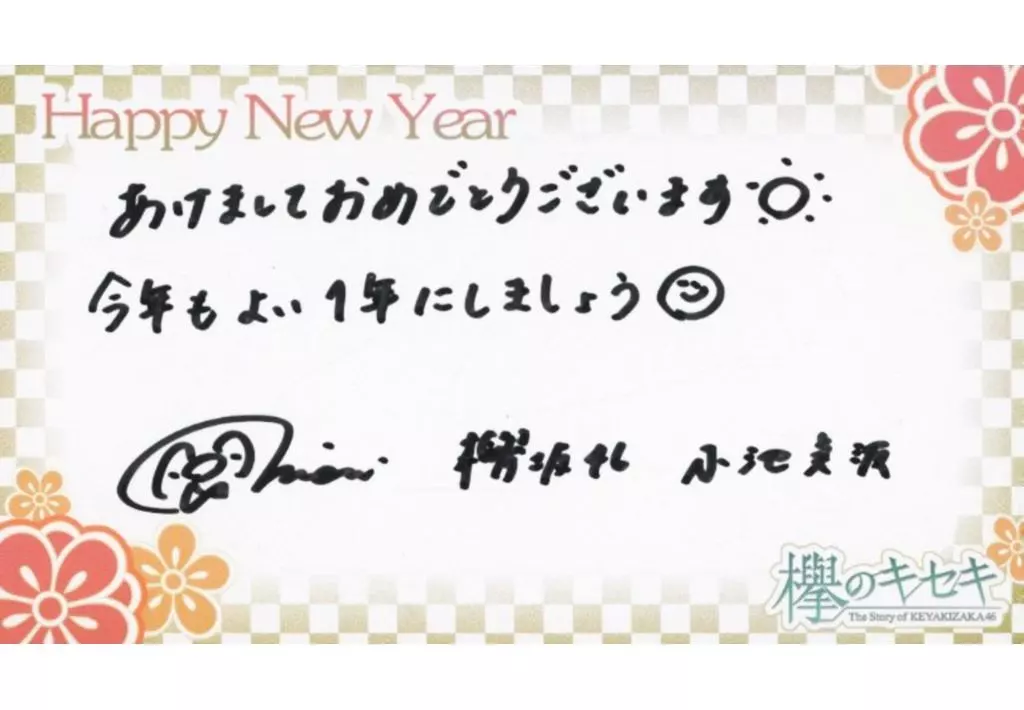 Happy New Year
あけましておめでとうございます
今年もよい1年にしましょう
欅坂46 小池美波
欅のキセキ
The Story of KEYAKIZAKA46